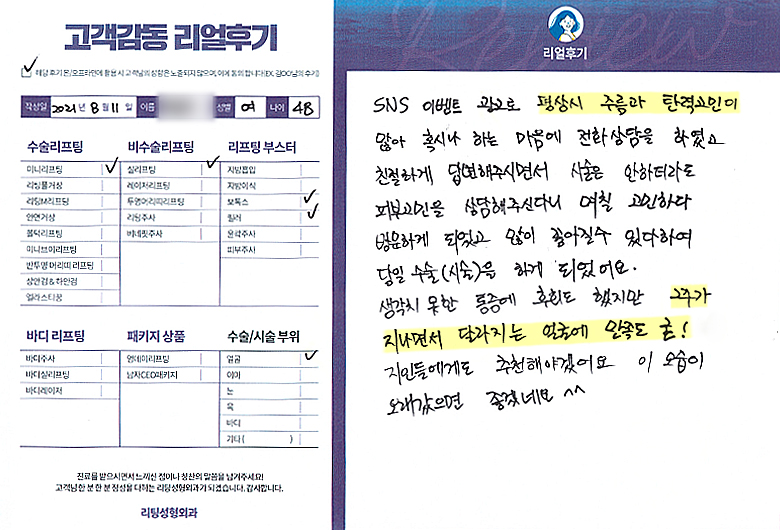 고객감동 리얼후기
해당 후기 온/오프라인에 활용 시 고객님의 성함은 노출되지 않으며, 이에 동의 합니다(EX. 김OO님의 후기)
작성일 2021년 8월 11일 이름 성별 여 나이 48
수술리프팅
미니리프팅
리팅풀거상
리팅M리프팅
안면거상
볼턱리프팅
미니브이리프팅
반투명 머리띠 리프팅
상안검 & 하안검
엘라스티꿈
비수술리프팅
실리프팅
레이저리프팅
투명머리띠리프팅
리팅주사
버네핏주사
리프팅 부스터
지방흡입
지방이식
보톡스
필러
윤곽주사
피부주사
바디 리프팅
바디주사
바디실리프팅
바디레이저
패키지 상품
원데이리프팅
남자CEO패키지
수술/시술 부위
얼굴
이마
눈
목
바디
기타 ( )
진료를 받으시면서 느끼신 점이나 칭찬의 말씀을 남겨주세요!
고객님 한 분 한 분 정성을 다하는 리팅성형외과가 되겠습니다. 감사합니다.
리팅성형외과
Review
리얼후기
SNS 이벤트 광고로 평상시 주름과 탄력고민이
많아 혹시나 하는 마음에 전화상담을 하였고
친절하게 답변해주시면서 시술은 안하더라도
피부고민을 상담해주신다니 며칠 고민하다
방문하게 되었고 많이 좋아질수 있다하여
당일 수술(시술)을 하게 되었어요.
생각치 못한 통증에 후회도 했지만 2주가
지나면서 달라지는 얼굴에 만족도 굳!
지인들에게도 추천해야겠어요 이 모습이
오래갔으면 좋겠네요 ^^